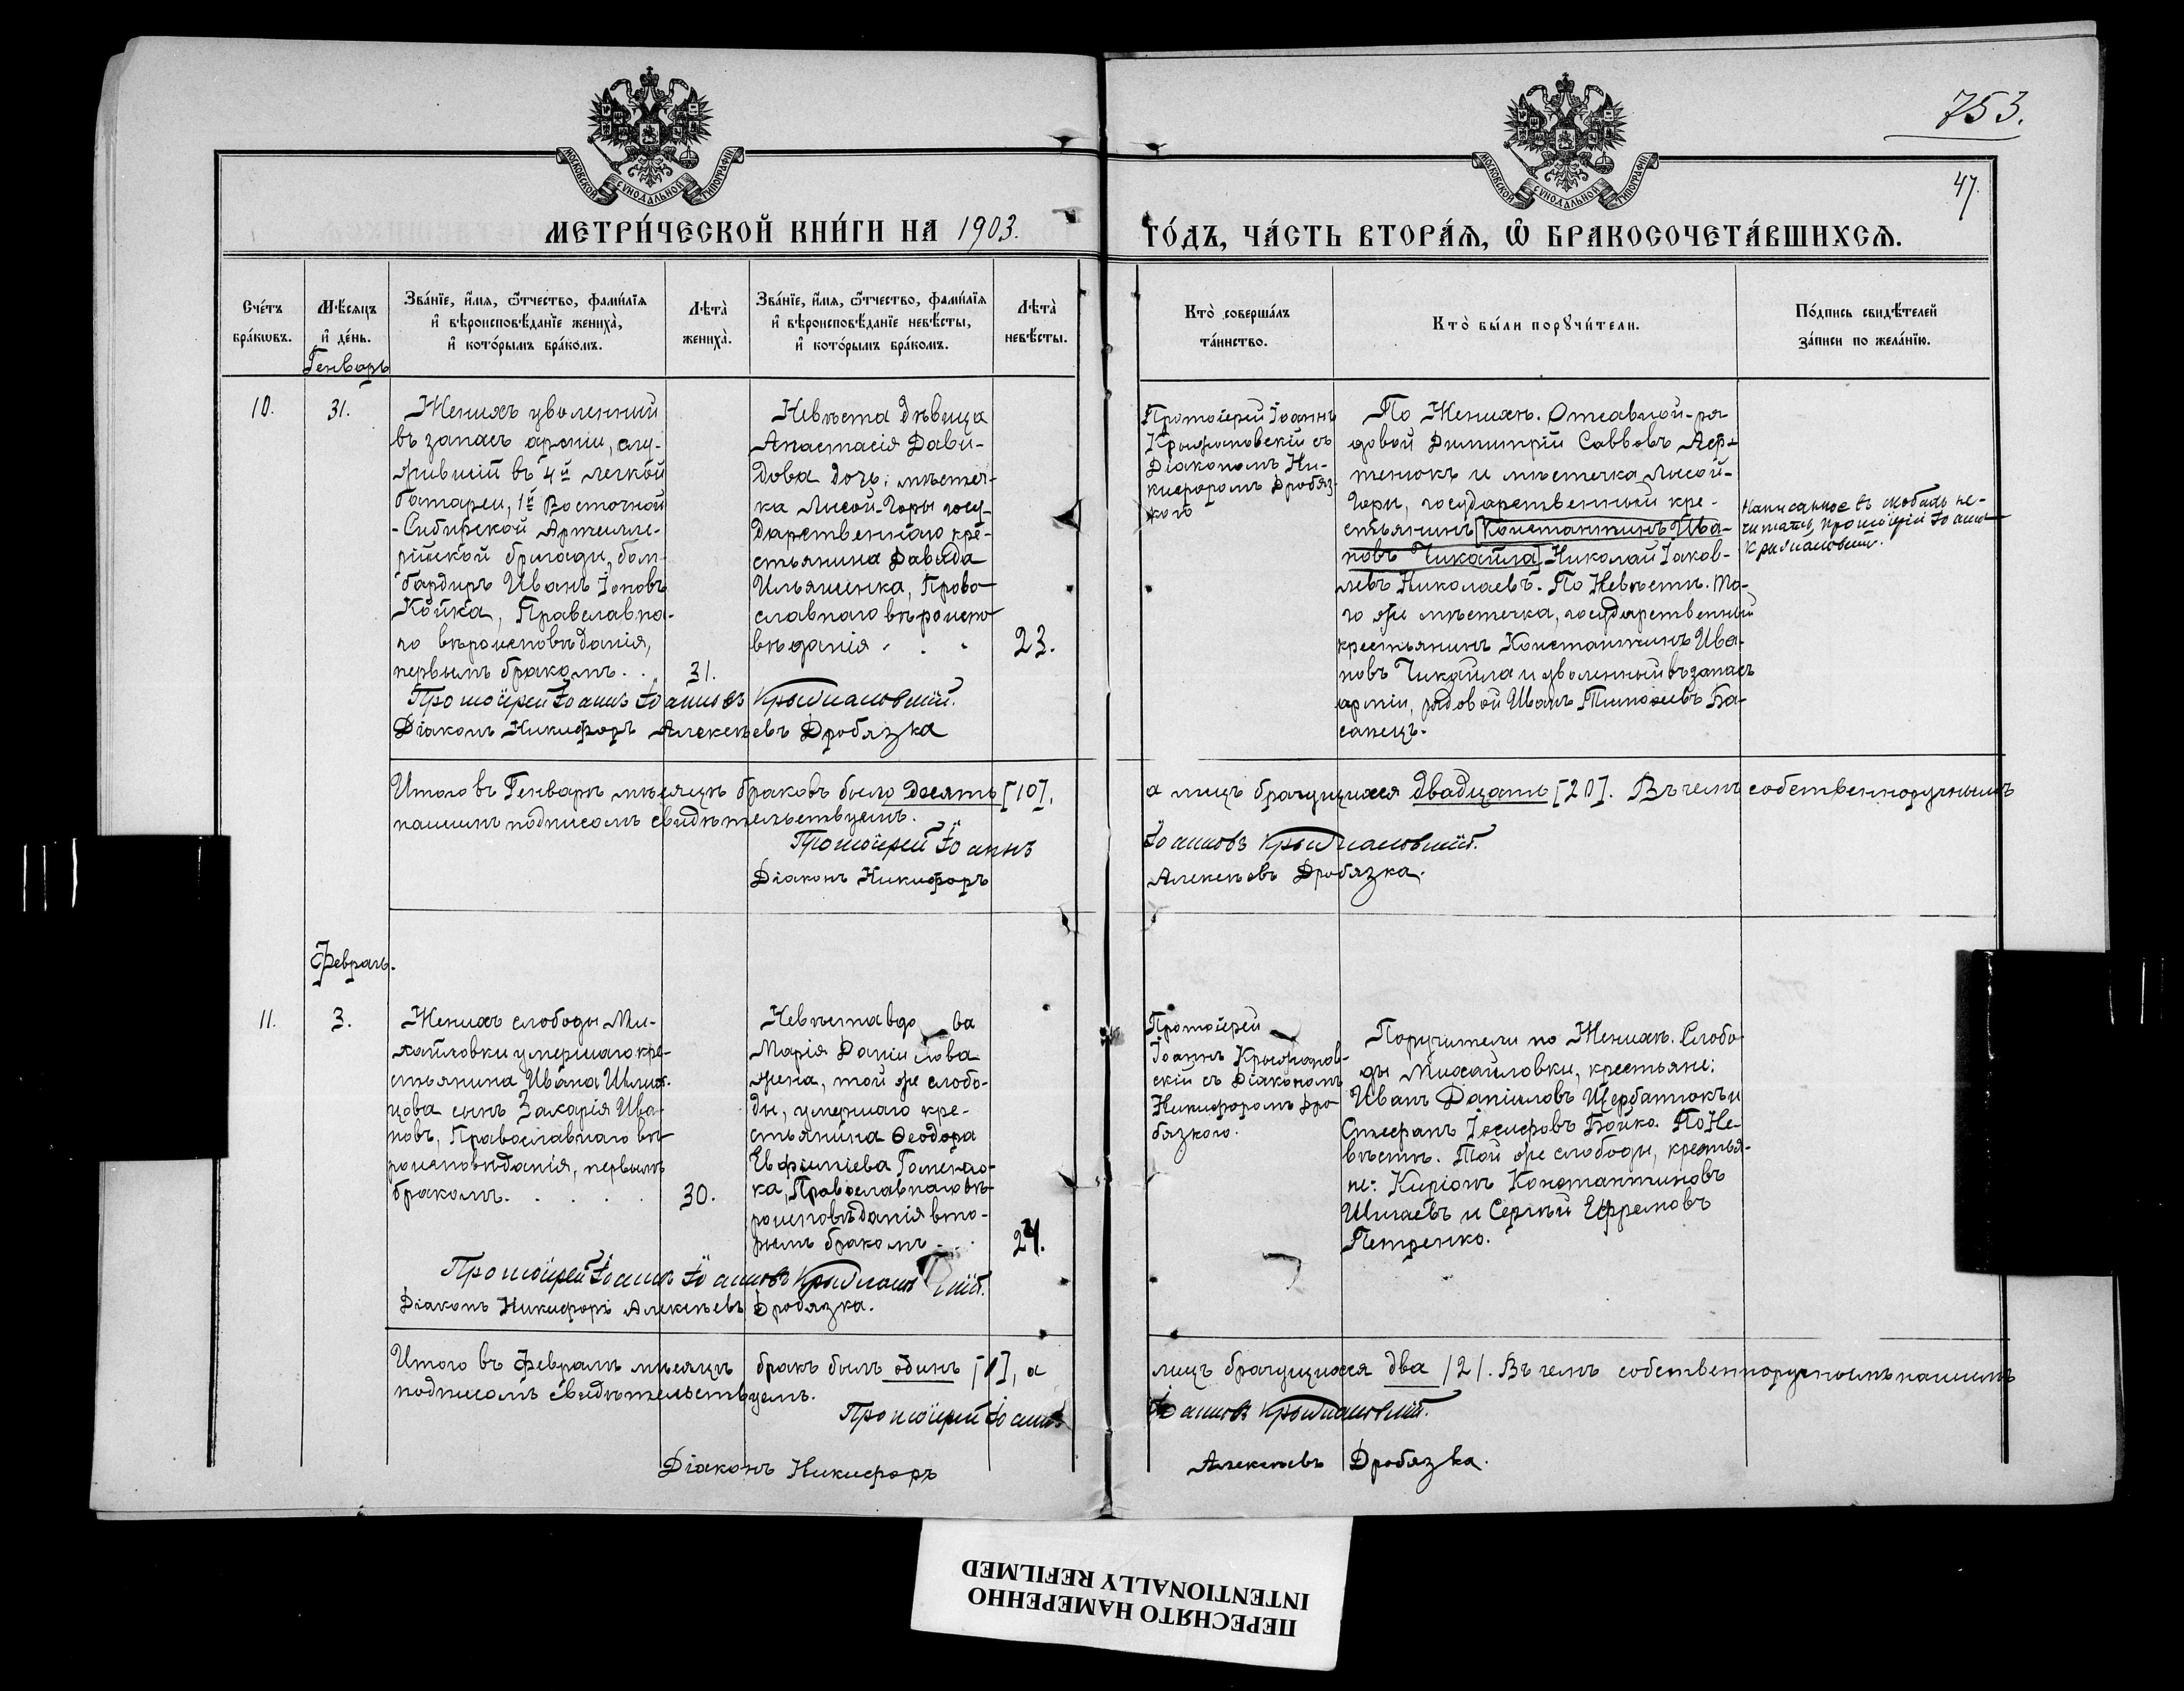 753.
47.
МОСКОВСКОЙ СѴНОДАЛЬНОЙ ТИПОГРАФІИ
МОСКОВСКОЙ СѴНОДАЛЬНОЙ ТИПОГРАФІИ
МЕТРИ́ЧЕСКОЙ КНИ́ГИ НА 1903.
ГО́ДЪ, ЧА́СТЬ ВТОРА́Ѧ, Ѡ҆ БРАКОСОЧЕТА́ВШИХСѦ.
Сче́тъ
бра́кѡвъ.
Мѣ́сяцъ
и҆ де́нь.
Генварь
Зва́нїе, и҆́мѧ, ѻ҆́тчество, фамилїѧ
и҆ вѣроисповѣ́данїе жениха̀,
и҆ кото́рымъ бра́комъ.
Лѣта̀
жениха̀.
Зва́нїе, и҆́мѧ, ѻ҆́тчество, фамилїѧ
и҆ вѣроисповѣ́данїе невѣ́сты,
и҆ кото́рымъ бра́комъ.
Лѣта̀
невѣ́сты.
Кто̀ соверша́лъ
та́инство.
Кто̀ бы́ли порꙋчи́тели.
По́дпись свидѣ́телей
за́писи по жела́нїю.
10.
31.
Женихъ уволенный
въ запасъ арміи, слу-
жившій въ 4й легкой
батареи, 1й Восточной
-Сибирской Артилле-
рійской бригады, бом-
бардиръ Иванъ Іоновъ
Койка, Православна-
го вѣроисповѣданія,
первымъ бракомъ. .
31.
Невѣста дѣвица
Анастасія Дави-
дова дочь: мѣстеч-
ка Лысой-Горы госу-
дарственнаго кре-
стьянина Давида
Ильяшенка, Право-
славнаго вѣроиспо-
вѣданія . . .
23.
Протоіерей Іоаннъ
Крыжановскій съ
Діакономъ Ни-
кифоромъ Дробяз-
кою
По Женихѣ. Отставной-ря
довой Димитрій Саввовъ
и мѣстечка Лысой-
Горы, государственный кре-
стьянинъ [Константинъ Ива-
новъ Чикайла] Николай Іаков-
левъ Николаевъ. По Невѣстѣ. То-
го же мѣстечка, государственный
крестьянинъ Константинъ Ива-
новъ Чикайла и уволенный въ запасъ
арміи, рядовой Иванъ Тимоѳеевъ Ба-
санецъ.
Написанное въ скобахъ не-
читать, протоіерей Іоаннъ
Крыжановскій.
Протоіерей Іоаннъ Іоанновъ Крыжановскій.
Діаконъ Никифоръ Алексѣевъ Дробязка
Итого въ Генварѣ мѣсяцѣ браковъ было десять [10],
а лицъ брачущихся двадцать [20]. Въ чемъ собственноручнымъ
нашимъ подписомъ свидѣтельствуемъ.
Протоіерей Іоаннъ
Іоанновъ Крыжановскій.
Діаконъ Никифоръ
Алексѣевъ Дробязка.
Февраль.
11.
3.
Женихъ слободы Ми-
хайловки умершаго кре-
стьянина Ивана
сынъ Захарія Ива-
новъ, Православнаго вѣ-
роисповѣданія, первымъ
бракомъ. . . . .
30.
Невѣста вдова
Марія Даніилова
жена, той же слобо-
ды, умершаго кре-
стьянина Ѳеодора
Евфиміева
Православнаго вѣ-
роисповѣданія вто-
рымъ бракомъ . . .
24.
Протоіерей
Іоаннъ Крыжанов-
скій съ Діакономъ
Никифоромъ Дро
бязкою.
Поручители по Женихѣ. Слобо
ды Михайловки, крестьяне:
Иванъ Даніиловъ Щербатюкъ и
Стефанъ Іосифовъ Бойко. По Не-
вѣстѣ. Той же слободы, крестья-
не: Киріонъ Константиновъ
Шигаевъ и Сергій Ефремовъ
Петренко.
Протоіерей Іоаннъ Іоанновъ Крыжановскій.
Діаконъ Никифоръ Алексѣевъ Дробязка.
Итого въ Февралѣ мѣсяцѣ бракъ былъ одинъ [1], а
лицъ брачущихся два /2/. Въ чемъ собственноручнымъ нашимъ
подписомъ свидѣтельствуемъ.
Протоіерей Іоаннъ
Іоанновъ Крыжановскій.
Діаконъ Никифоръ
Алексѣевъ Дробязка.
ПЕРЕСНЯТО НАМЕРЕННО
INTENTIONALLY REFILMED